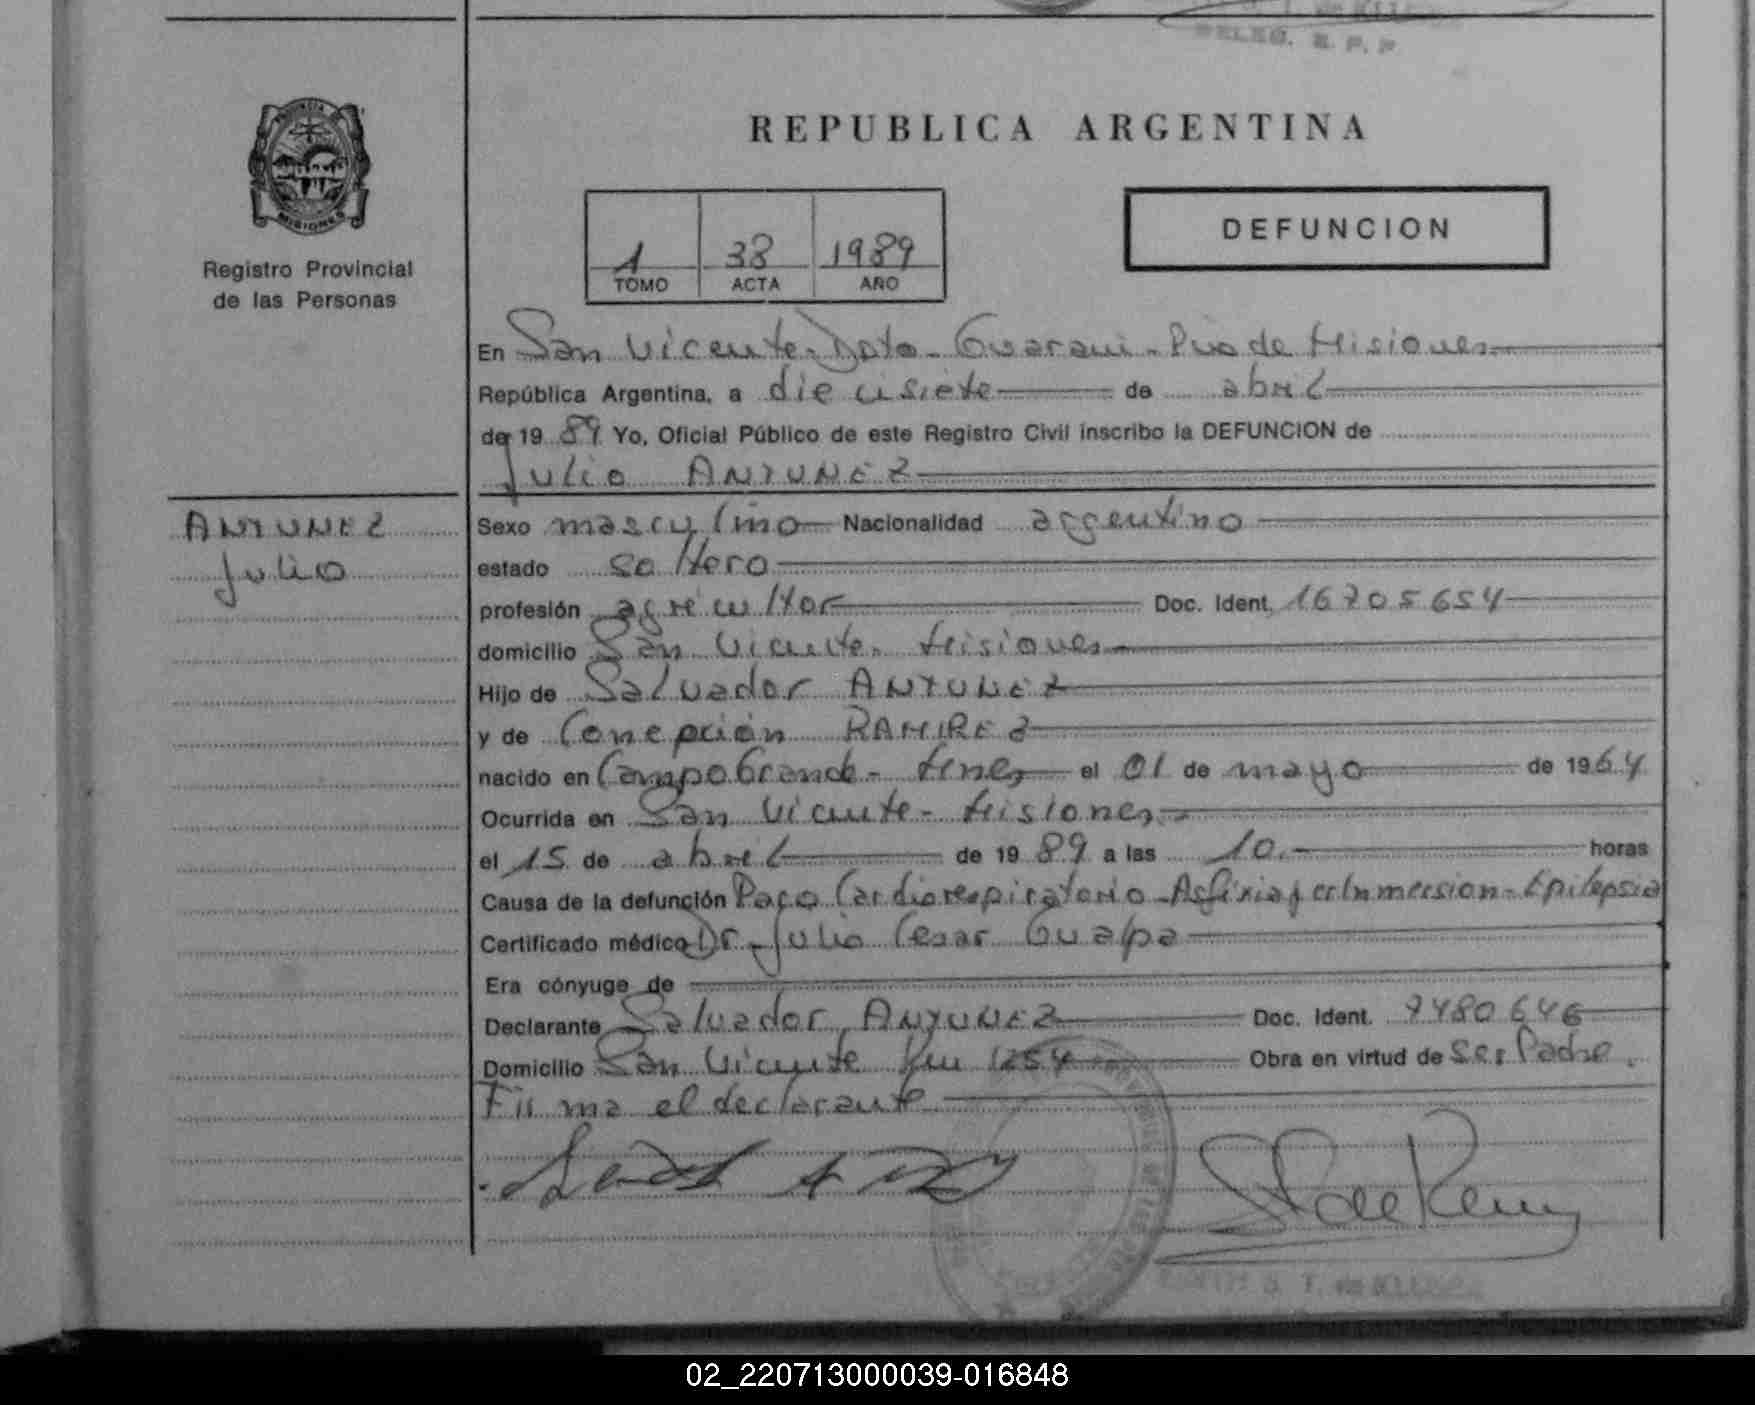 DELEG. R. P. P
PROVINCIA DE
MISIONES
Registro Provincial
de las Personas
REPUBLICA ARGENTINA
1 38 1989
TOMO ACTA AÑO
DEFUNCION
En San Vicente - Dpto - Guarani - Pcia de Misiones
República Argentina, a diecisiete de abril
de 19 89 Yo, Oficial Público de este Registro Civil inscribo la DEFUNCION de
Julio ANTUNEZ
ANTUNEZ
Julio
Sexo masculino Nacionalidad argentino
estado soltero
profesión agricultor Doc. Ident. 16705654
domicilio San Vicente. Misiones
Hijo de Salvador ANTUNEZ
y de Concepción RAMIREZ
nacido en Campo Grande - Mnes el 01 de mayo de 1964
Ocurrida en San Vicente - Misiones
el 15 de abril de 19 89 a las 10 horas
Causa de la defunción Paro Cardiorespiratorio - Asfixia por Inmersion - Epilepsia
Certificado médico Dr. Julio Cesar Gualpa
Era cónyuge de
Declarante Salvador ANTUNEZ Doc. Ident. 7480646
Domicilio San Vicente Km 1254 Obra en virtud de Ser Padre.
Firma el declarante
S. T. de
02_220713000039-016848